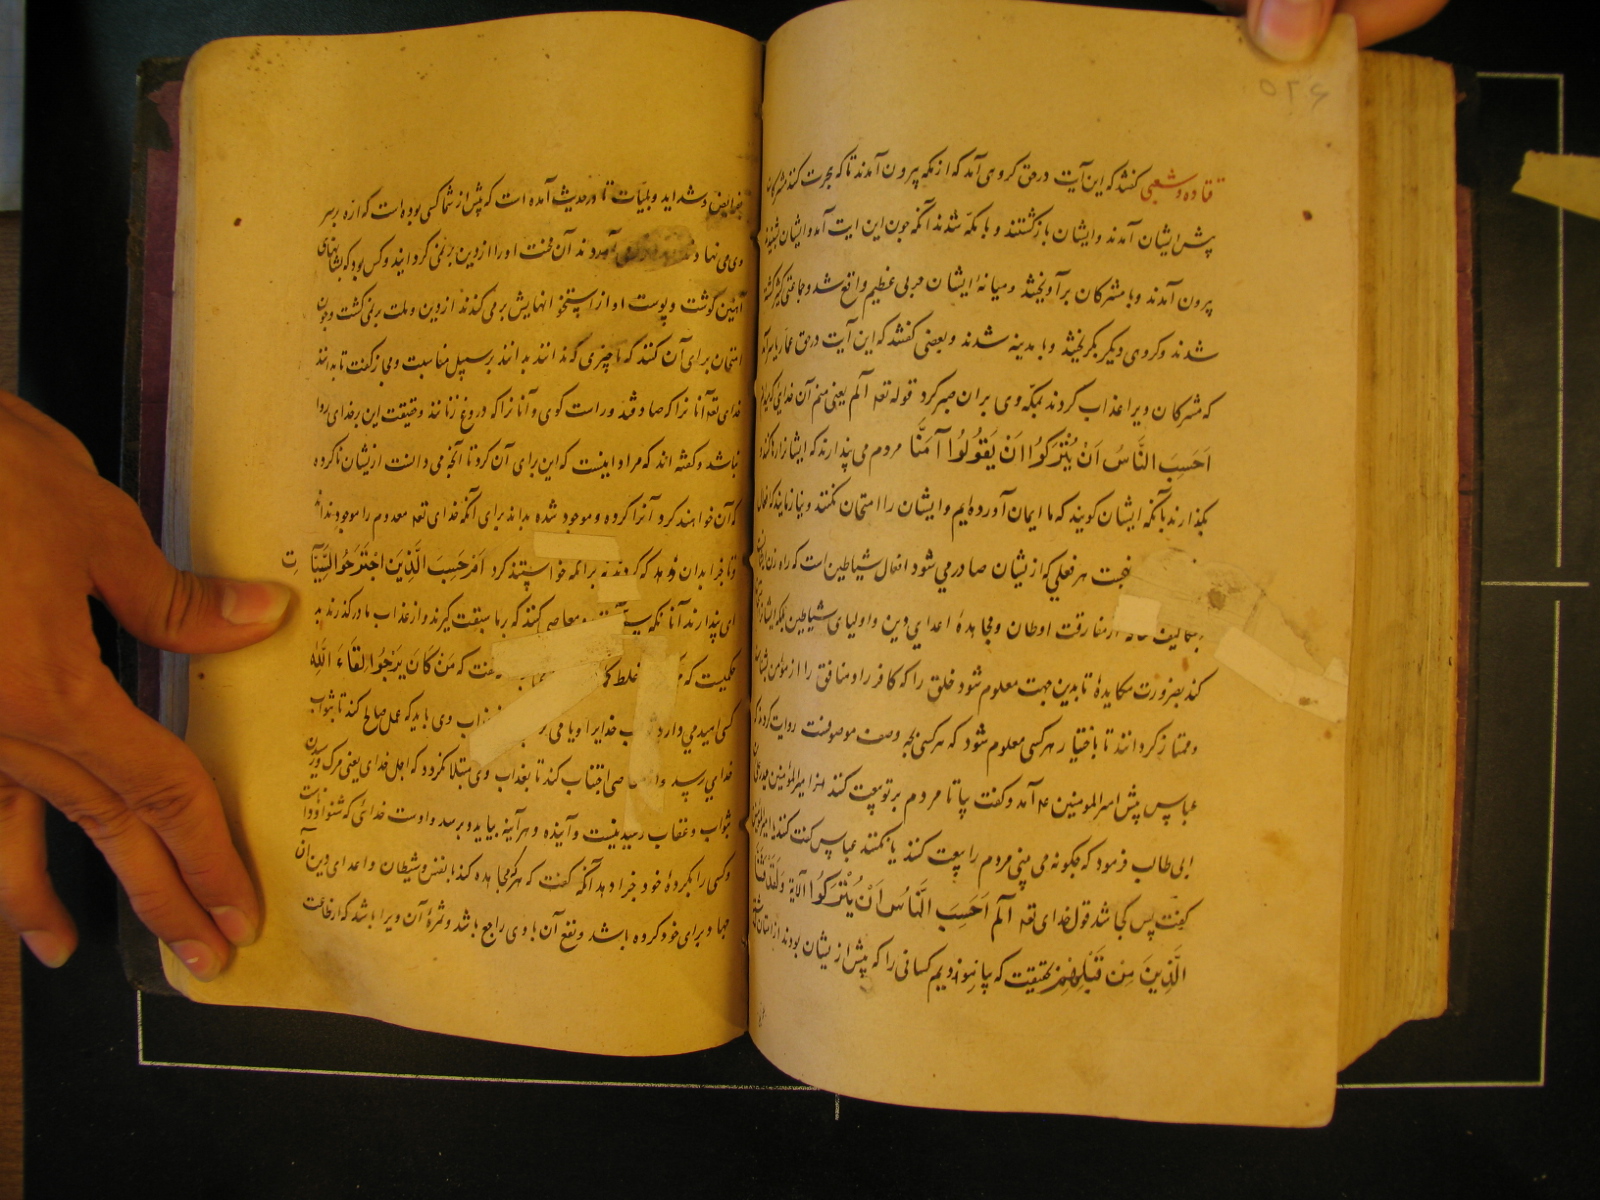 ۵۲۶
قتاده و شعبی گفتند که این آیت در حق گروهی آمد که از مکه بیرون آمدند تا که هجرت کنند مشرکان
پیش ایشان آمدند و ایشان بازگشتند و با مکه شدند آنگه چون این ایت آمد و ایشان
بیرون آمدند و با مشرکان برآویختند و میانهٔ ایشان حربی عظیم واقع شد و جماعتی کشته
شدند و گروهی دیگر بگریختند و با مدینه شدند و بعضی گفتند که این آیت در حق عمار یاسر آمد
که مشرکان ویرا عذاب کردند بمکه وی بران صبر کرد قوله تعه الم یعنی منم آن خدای که
اَحَسِبَ النَّاسُ اَنْ یُتْرَکُوا اَنْ یَقُولُوا آمَنَّا مردم می پندارند که ایشانرا رها کنند و
بگذارند بآنکه ایشان گویند که ما ایمان آورده‌ایم و ایشان را امتحان نکنند و نیازمایند
هر فعلی که از یشان صادر می شود افعال شیاطین است که راه زن
مفارقت اوطان و مجاهدهٔ اعدای دین و اولیای شیاطین بلکه ایشانرا
کند بضرورت مکایدهٔ تا بدین جهت معلوم شود خلق را که کافر را و منافق را از مؤمن
و ممتاز گردانند تا باختیار هرکسی معلوم شود که هرکسی بچه وصف موصوفست روایت کردند که
عباس پیش امیر المومنین ع آمد و گفت بیا تا مردم بر تو بیعت کنند امیر المؤمنین
ابی طالب فرمود که چگونه می بینی مردم را بیعت کنند یا نکنند عباس گفت کنند
گفت پس کجا شد قول خدای تعه الم اَحَسِبَ النَّاسُ اَنْ یُتْرَکُوا الآیة وَلَقَدْ فَتَنَّا
الَّذِینَ مِنْ قَبْلِهِمْ بحقیقت که بیازمودیم کسانی را که پیش از یشان بودند از
بفرایض و شداید و بلیات تا در حدیث آمده است که پیش از شما کسی بوده است که اره بر سر
وی می نهادند آن محنت او را از دین بر نمی گردانید و کس بود که بشانهای
آهنین گوشت و پوست او از استخوانهایش بر می کندند از دین و ملت بر نمی گشت و چون
امتحان برای آن کنند که تا چیزی که ندانند بدانند بر سبیل مناسبت و مجاز گفت تا بدانند
خدای تعه آنانرا که صادقند و راست گوی و آنانرا که دروغ زنانند و حقیقت این بر خدای روا
نباشد و گفته اند که مراد اینست که این برای آن کرد تا آنچه می دانست ازیشان ناکرده
که آن خواهند کرد آنرا کرده و موجود شده بداند برای آنکه خدای تعه معدوم را موجود نداند
و تا جزا بدان دهد که کردند نه برانچه خواستند کرد اَمْ حَسِبَ الَّذِینَ اجْتَرَحُوا السَّیِّئَاتِ
ای پندارند آنانکه معاصی کنند که بر ما سبقت گیرند و از عذاب ما درگذرند بد
حکمیست که غلط گفت که مَنْ کَانَ یَرْجُوا لِقَاءَ اللّٰه
کسی امید می دارد خدایرا و یا می وی باید که عمل صالح کند تا بثواب
خدای رسد و از معاصی اجتناب کند تا بعذاب وی مبتلا نگردد که اجل خدای یعنی مرگ و رسیدن
بثواب و عقاب رسیدنیست و آینده و هرآینه بیاید و برسد و اوست خدای که شنوا و دانا
و کسی را بکردهٔ خود جزا دهد آنگه گفت که هرکه مجاهده کند با نفس و شیطان و اعدای دین آن
جهاد برای خود کرده باشد و نفع آن با وی راجع باشد و ثمرهٔ آن ویرا باشد که از طاعت